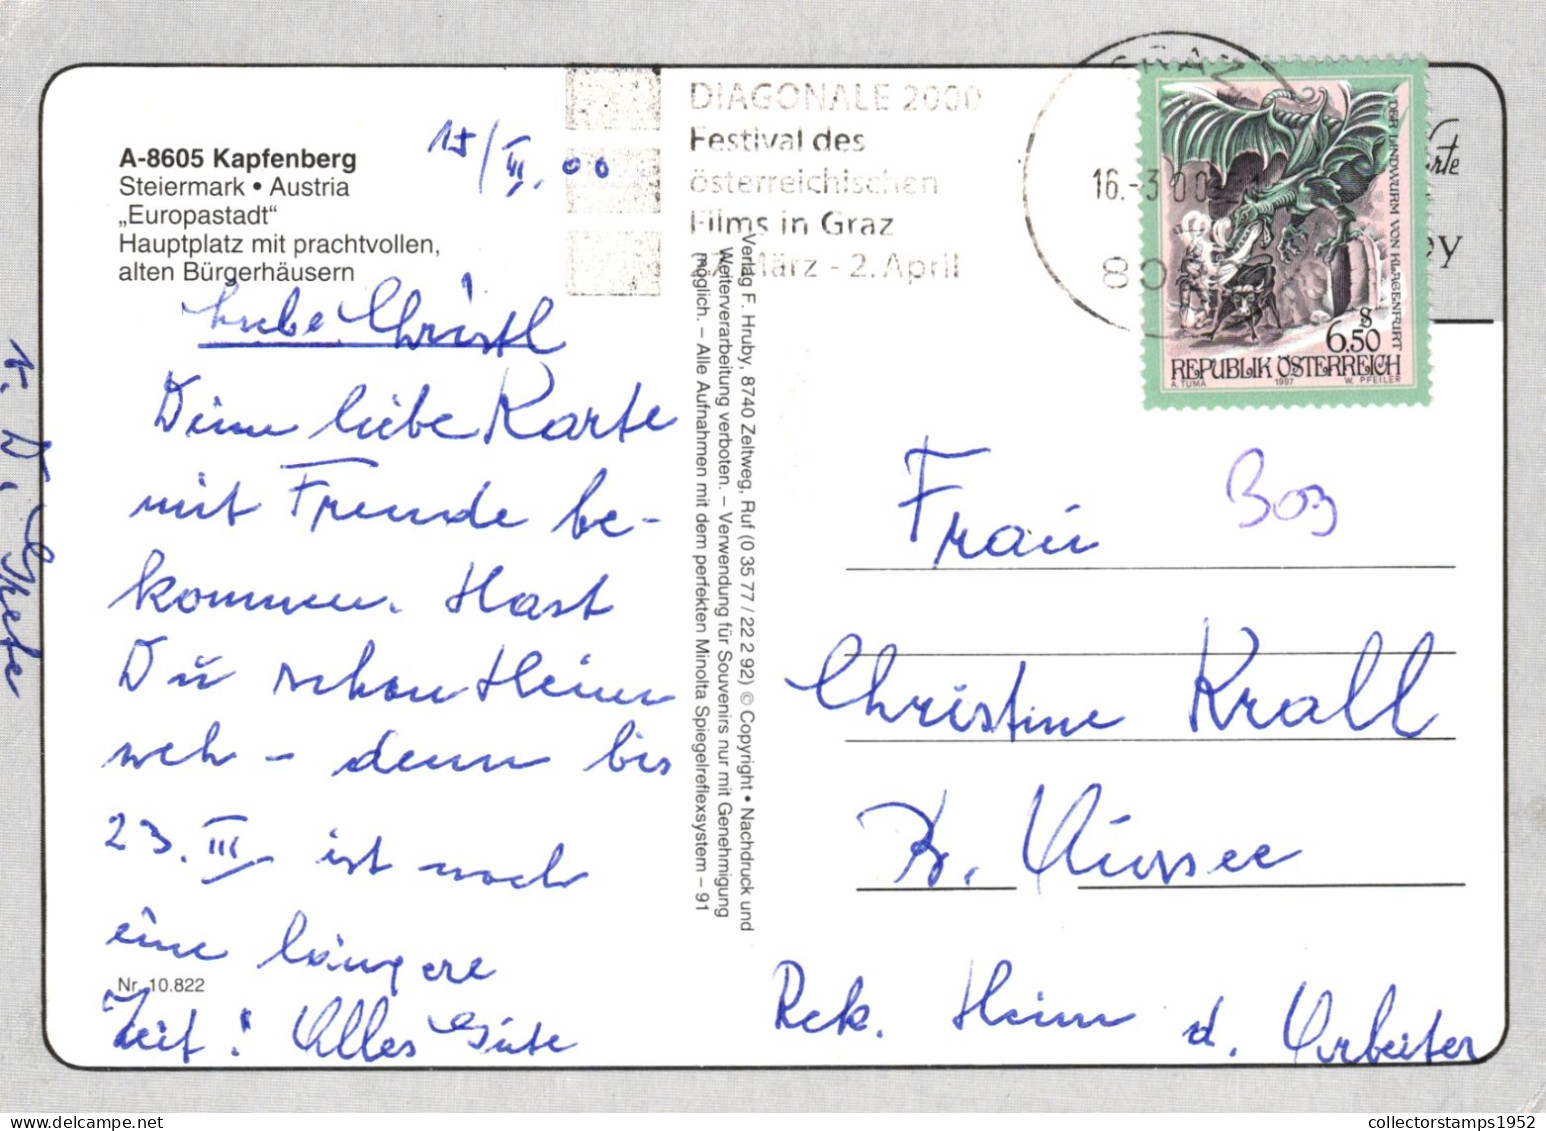 A-8605 Kapfenberg
Steiermark • Austria
„Europastadt“
Hauptplatz mit prachtvollen,
alten Bürgerhäusern
15/III.00
Liebe Christl
Deine liebe Karte
mit Freude be-
kommen. Hast
Du schon Heim
weh – denn bis
23. III ist noch
eine längere
Zeit! Alles Gute
w. D. Grete
Nr. 10.822
DIAGONALE 2000
Festival des
österreichischen
Films in Graz
März - 2. April
GRAZ
16.-3.00
80
DER LINDWURM VON KLAGENFURT
S
6.50
REPUBLIK ÖSTERREICH
A. TUMA 1997 W. PFEILER
Verlag F. Hruby, 8740 Zeltweg, Ruf (0 35 77 / 22 2 92) © Copyright • Nachdruck und
Weiterverarbeitung verboten. – Verwendung für Souvenirs nur mit Genehmigung
möglich. – Alle Aufnahmen mit dem perfekten Minolta Spiegelreflexsystem – 91
Frau
303
Christine Krall
B. Aussee
Rek. Heim d. Arbeiter
collectorstamps1952